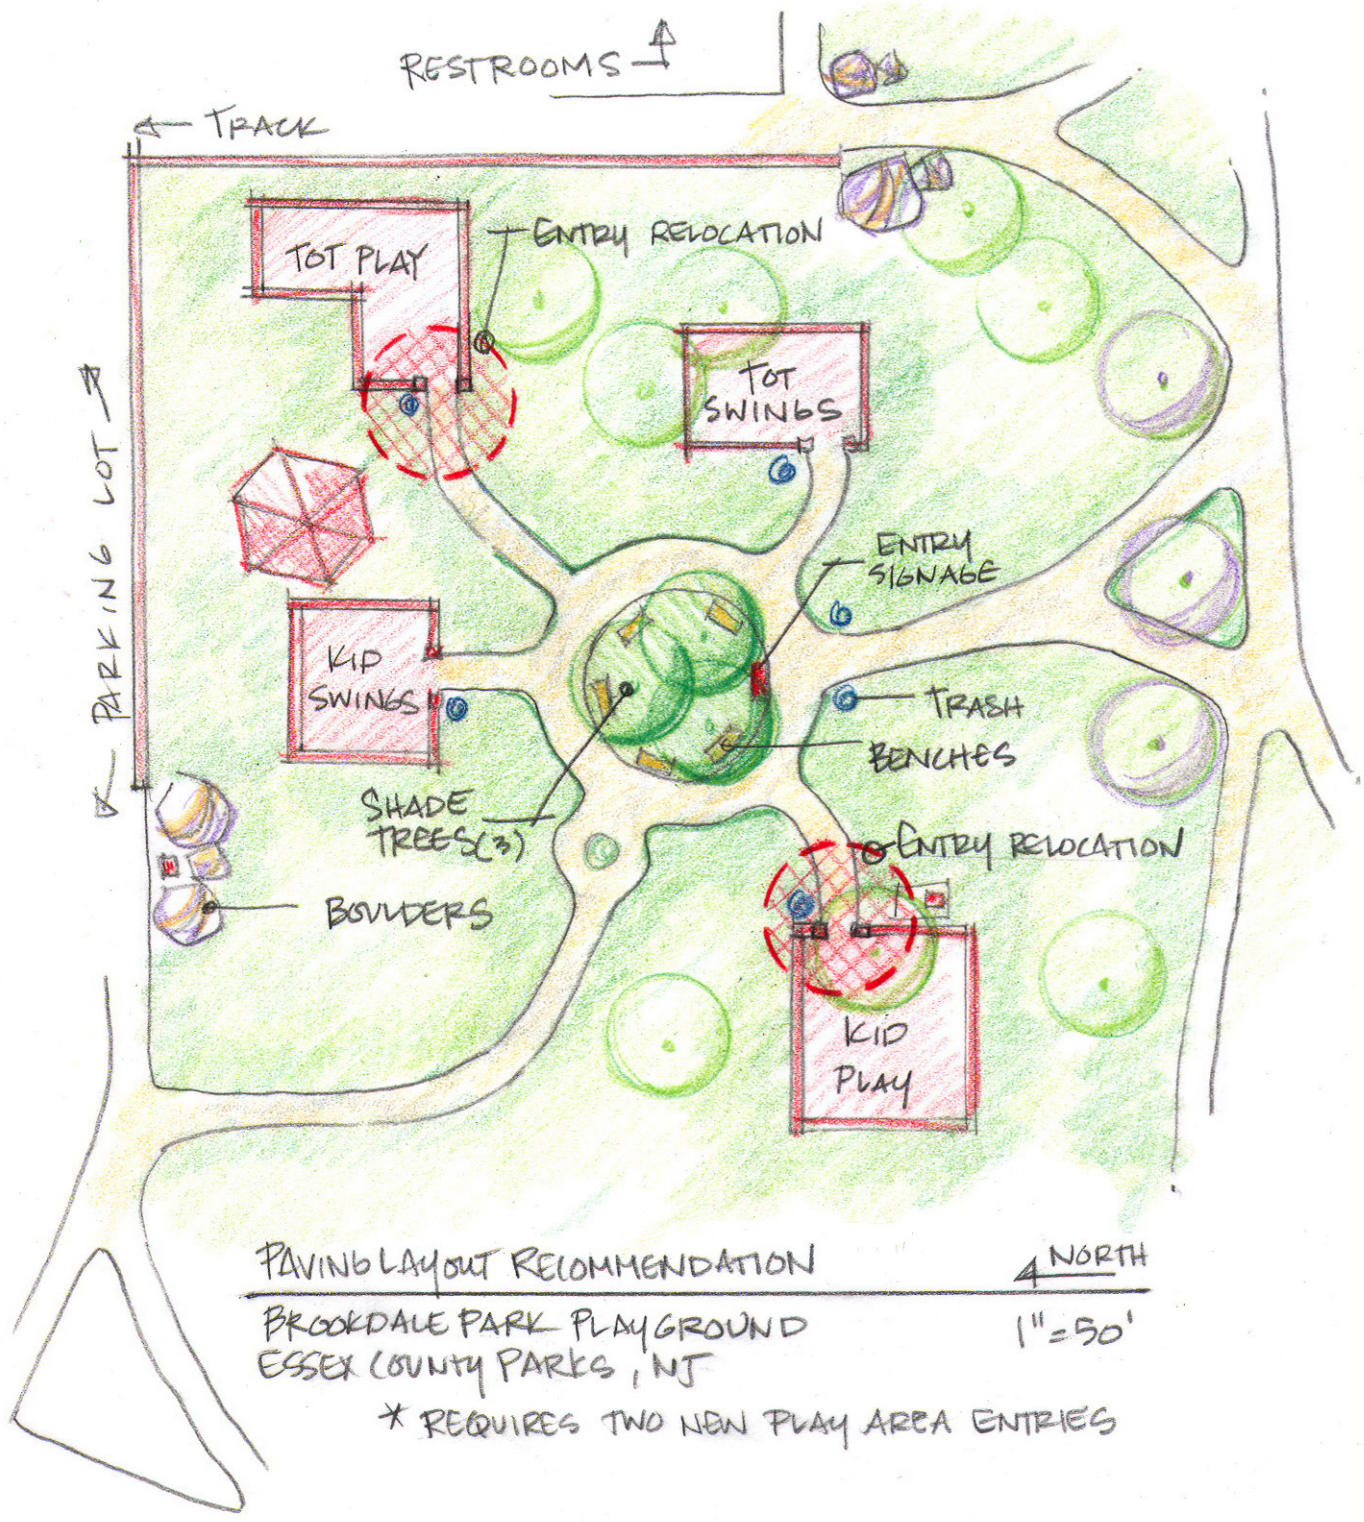 RESTROOMS
TRACK
ENTRY RELOCATION
TOT PLAY
TOT
SWINGS
PARKING LOT
ENTRY
SIGNAGE
KID
SWINGS
TRASH
BENCHES
SHADE
TREES(3)
ENTRY RELOCATION
BOULDERS
KID
PLAY
PAVING LAYOUT RECOMMENDATION
NORTH
BROOKDALE PARK PLAYGROUND
1"=50'
ESSEX COUNTY PARKS, NJ
* REQUIRES TWO NEW PLAY AREA ENTRIES